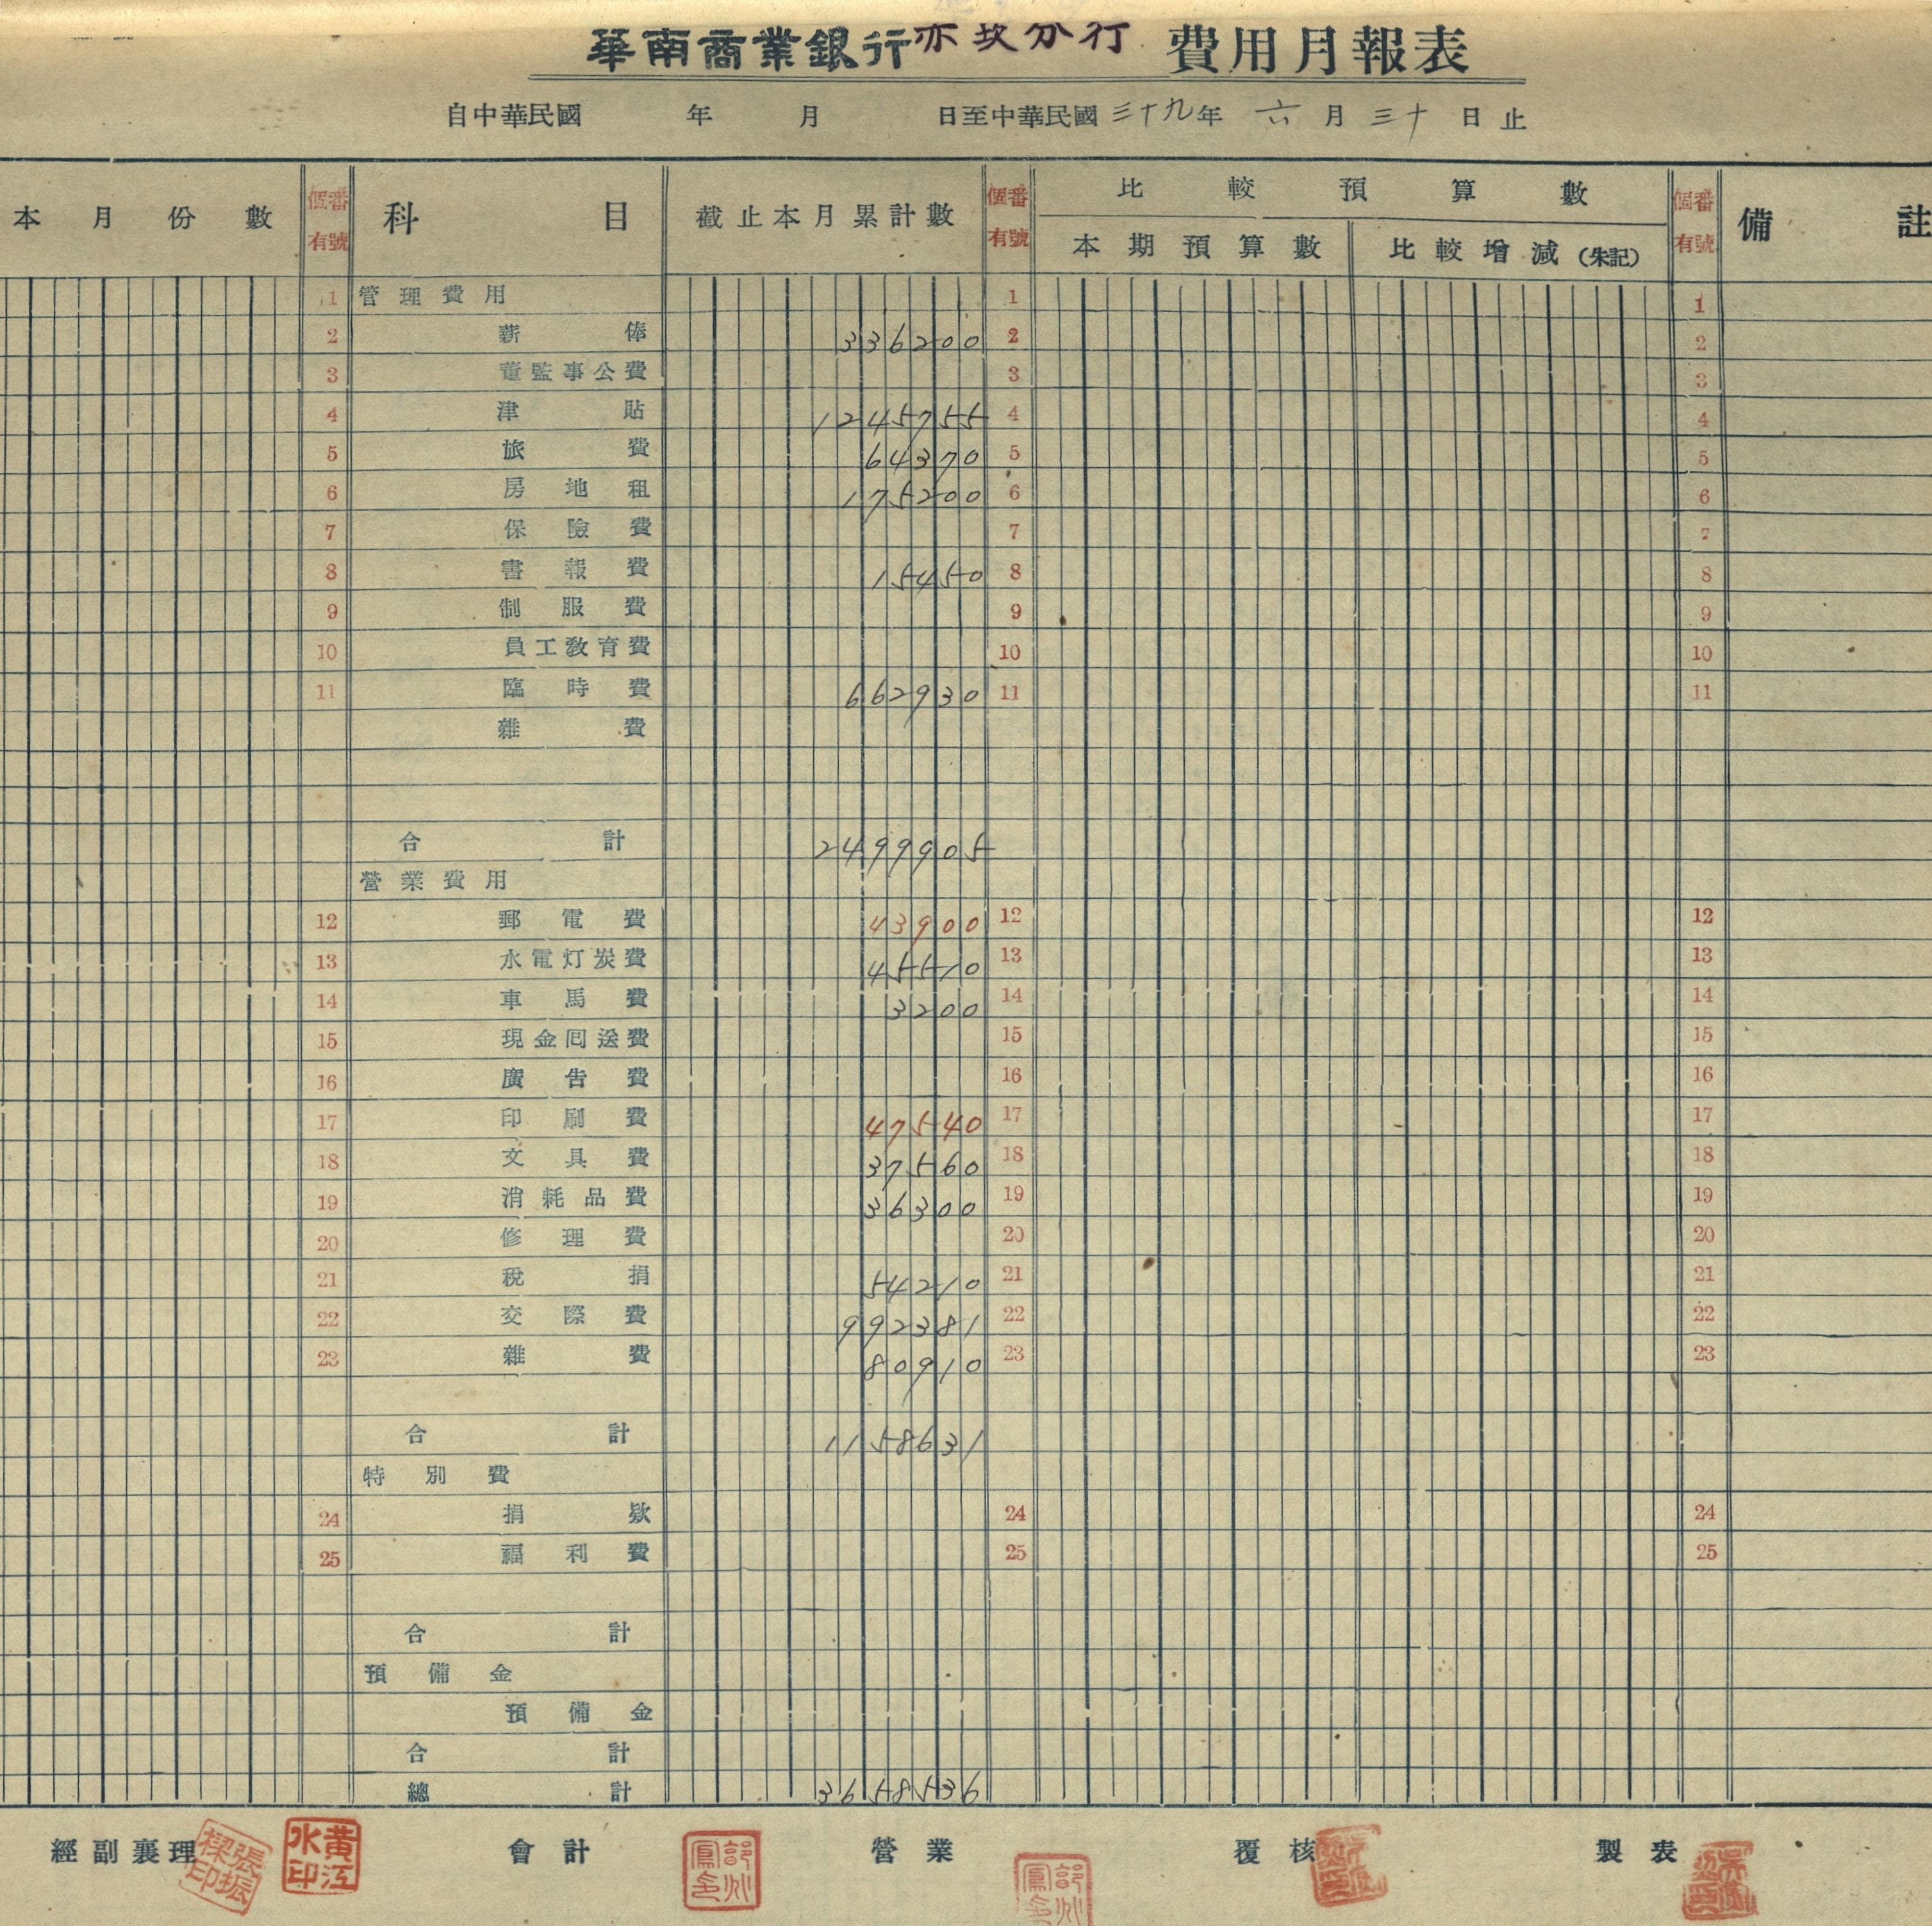 華南商業銀行赤崁分行 費用月報表
自中華民國 年 月 日至中華民國三十九年 六月 三十日止
本月份數 個番有號 科目 截止本月累計數 個番有號 比較預算數 個番有號 備註
本期預算數 比較增減(朱記)
1 管理費用 1 1
2 薪俸 336200 2 2
3 董監事公費 3 3
4 津貼 1245755 4 4
5 旅費 64370 5 5
6 房地租 175200 6 6
7 保險費 7 7
8 書報費 15450 8 8
9 制服費 9 9
10 員工教育費 10 10
11 臨時費 662930 11 11
雜費
合計 2499905
營業費用
12 郵電費 43900 12 12
13 水電灯炭費 45510 13 13
14 車馬費 3200 14 14
15 現金囘送費 15 15
16 廣告費 16 16
17 印刷費 47540 17 17
18 文具費 37560 18 18
19 消耗品費 36300 19 19
20 修理費 20 20
21 稅捐 54210 21 21
22 交際費 992381 22 22
23 雜費 80910 23 23
合計 1158631
特別費
24 捐欵 24 24
25 福利費 25 25
合計
預備金
預備金
合計
總計 3658536
經副襄理 張振樑印 黃江水印 會計 營業 覆核 製表